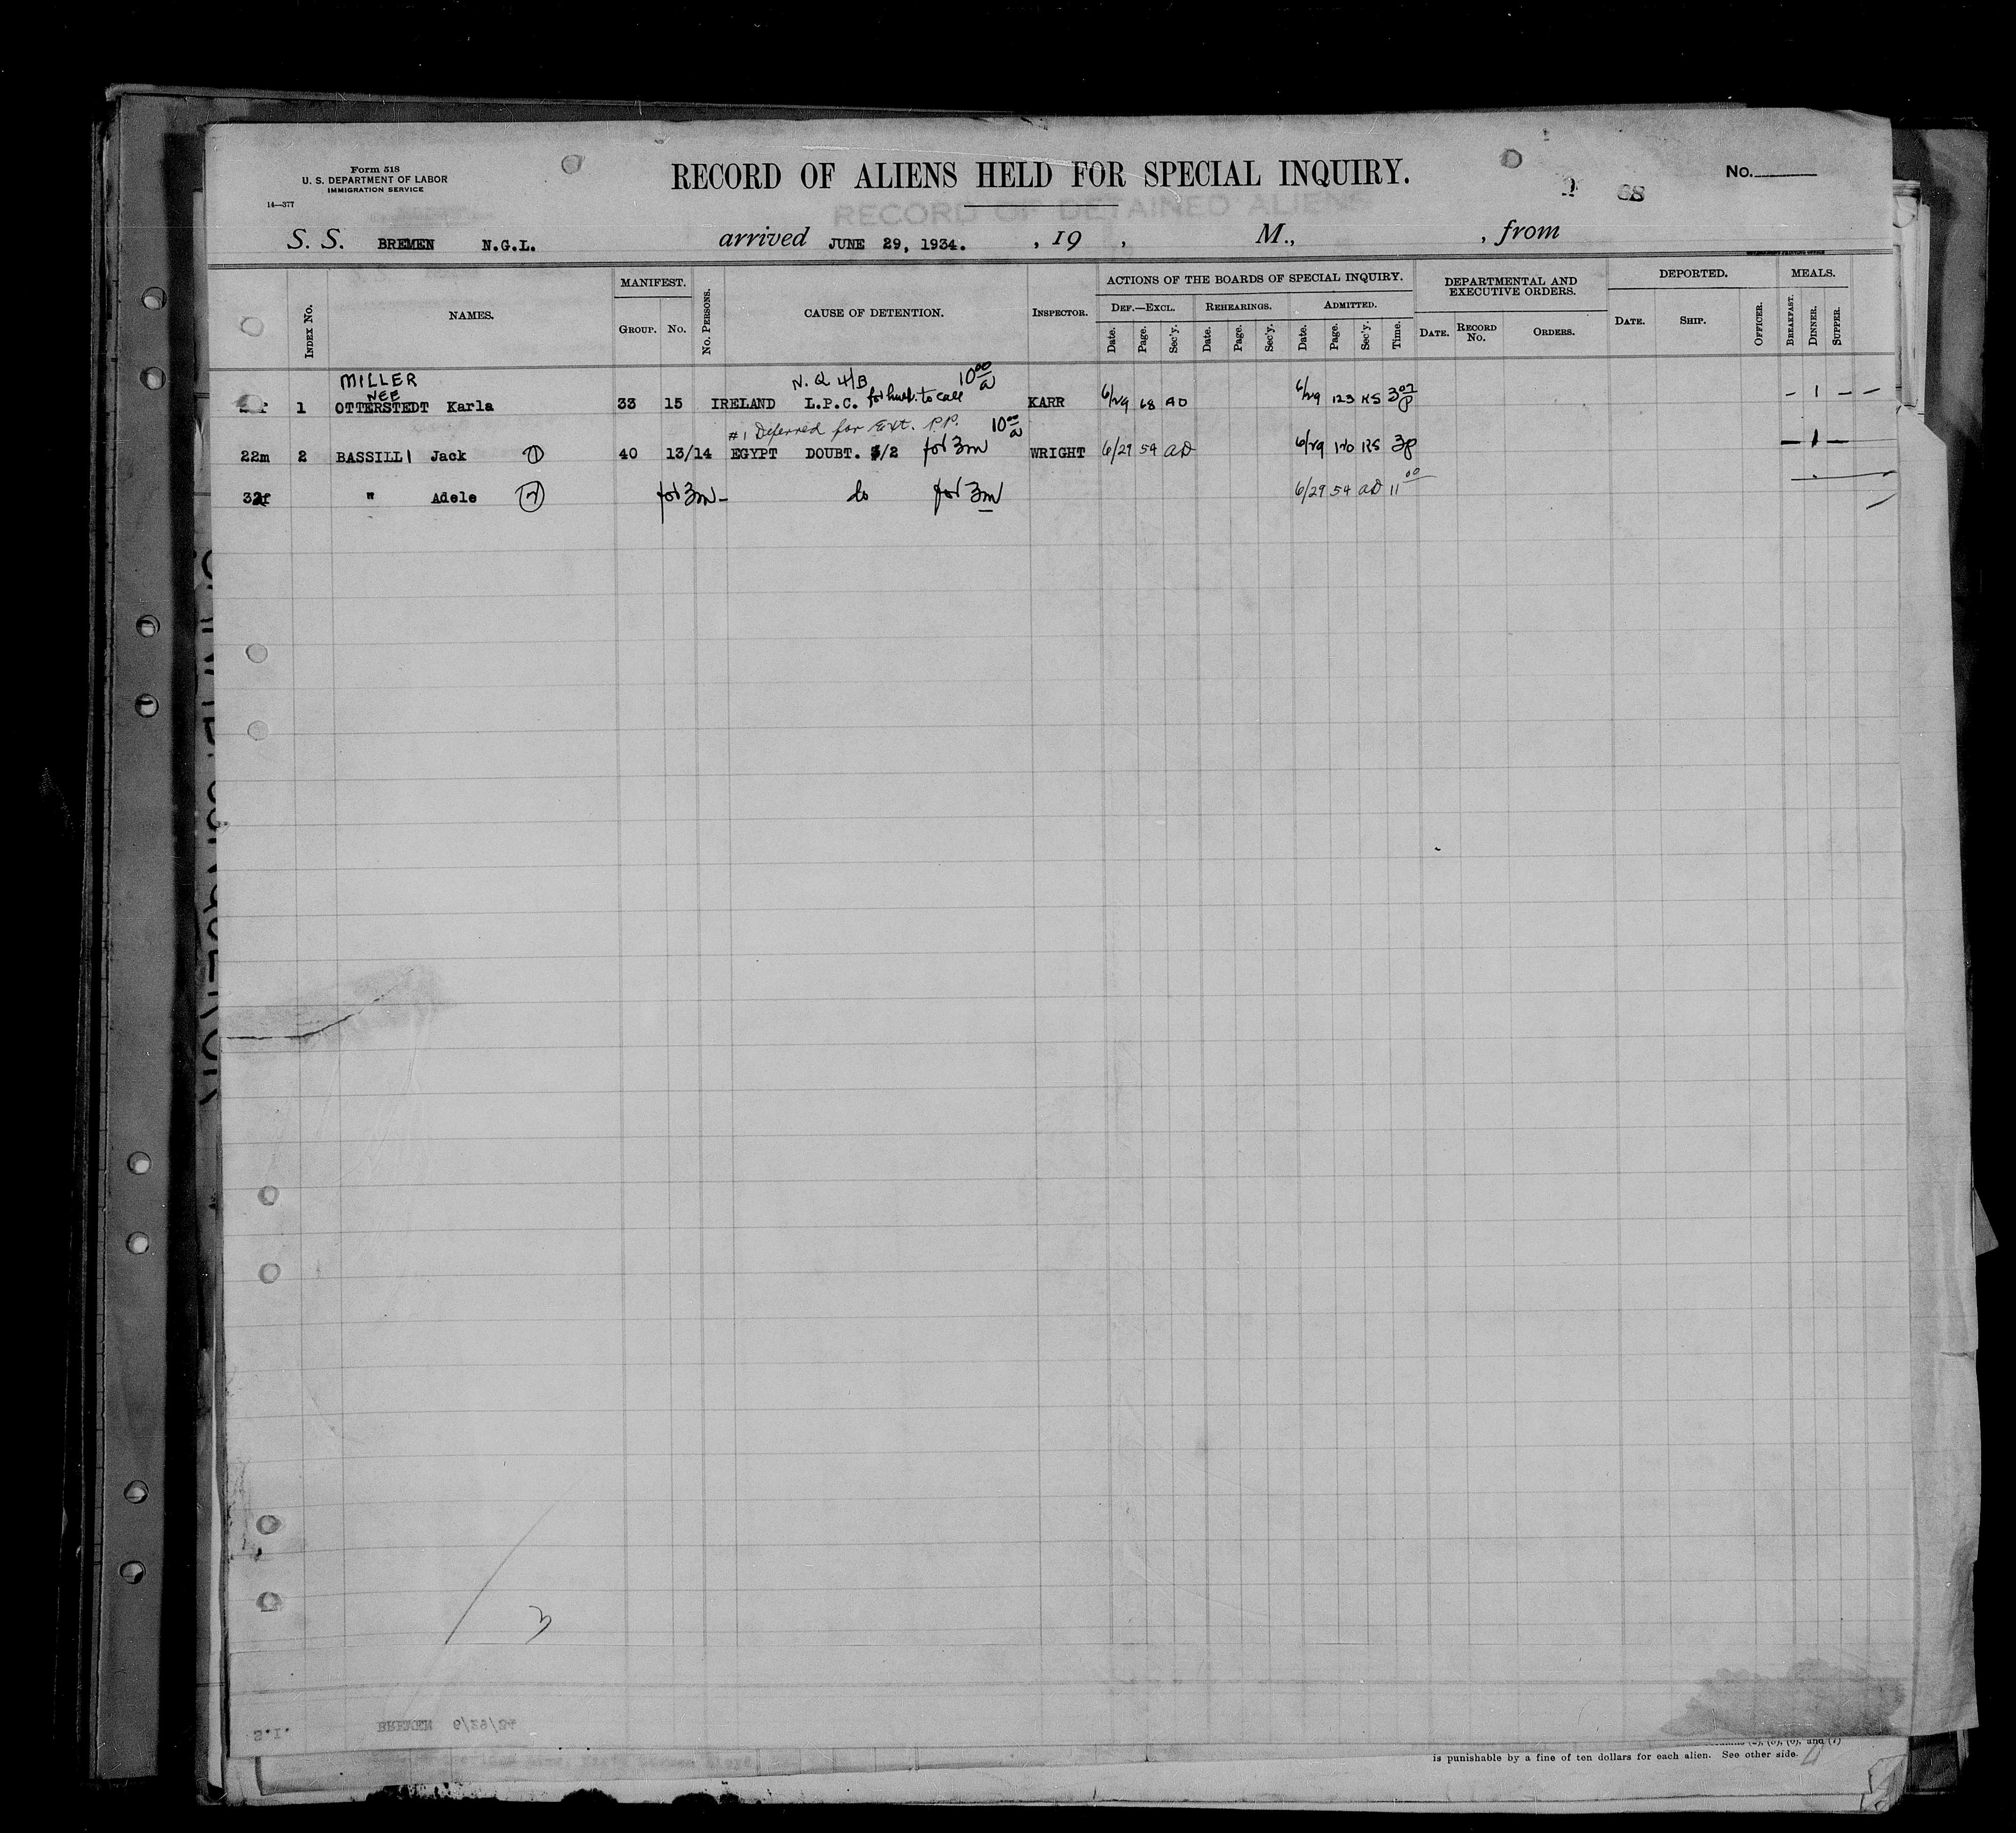 Form 518
U. S. DEPARTMENT OF LABOR
IMMIGRATION SERVICE
14—377
RECORD OF ALIENS HELD FOR SPECIAL INQUIRY.
No.
68
RECORD OF DETAINED ALIENS
S. S. BREMEN N.G.L. arrived JUNE 29, 1934. , 19 , M., , from
INDEX No. NAMES. MANIFEST. GROUP. No. No. PERSONS. CAUSE OF DETENTION. INSPECTOR.
ACTIONS OF THE BOARDS OF SPECIAL INQUIRY.
DEF.—EXCL. Date. Page. Sec'y. REHEARINGS. Date. Page. Sec'y. ADMITTED. Date. Page. Sec'y. Time.
DEPARTMENTAL AND EXECUTIVE ORDERS. DATE. RECORD No. ORDERS.
DEPORTED. DATE. SHIP. OFFICER.
MEALS. BREAKFAST. DINNER. SUPPER.
MILLER N. Q 4/B 10 00 a
NEE
1 OTTERSTEDT Karla 33 15 IRELAND L.P.C. to call KARR 6/29 68 AD 6/29 123 KS – 1 – –
#1 Deferred for Ext. P.P. 10 00 a
22m 2 BASSILLI Jack 1 40 13/14 EGYPT DOUBT. /2 for 3m WRIGHT 6/29 54 AD 6/29 120 KS 3p – 1 –
32f " Adele 2 for 3m – do for 3m 6/29 54 AD 11 00
3
S.I. BREMEN 6/29/34
is punishable by a fine of ten dollars for each alien. See other side.